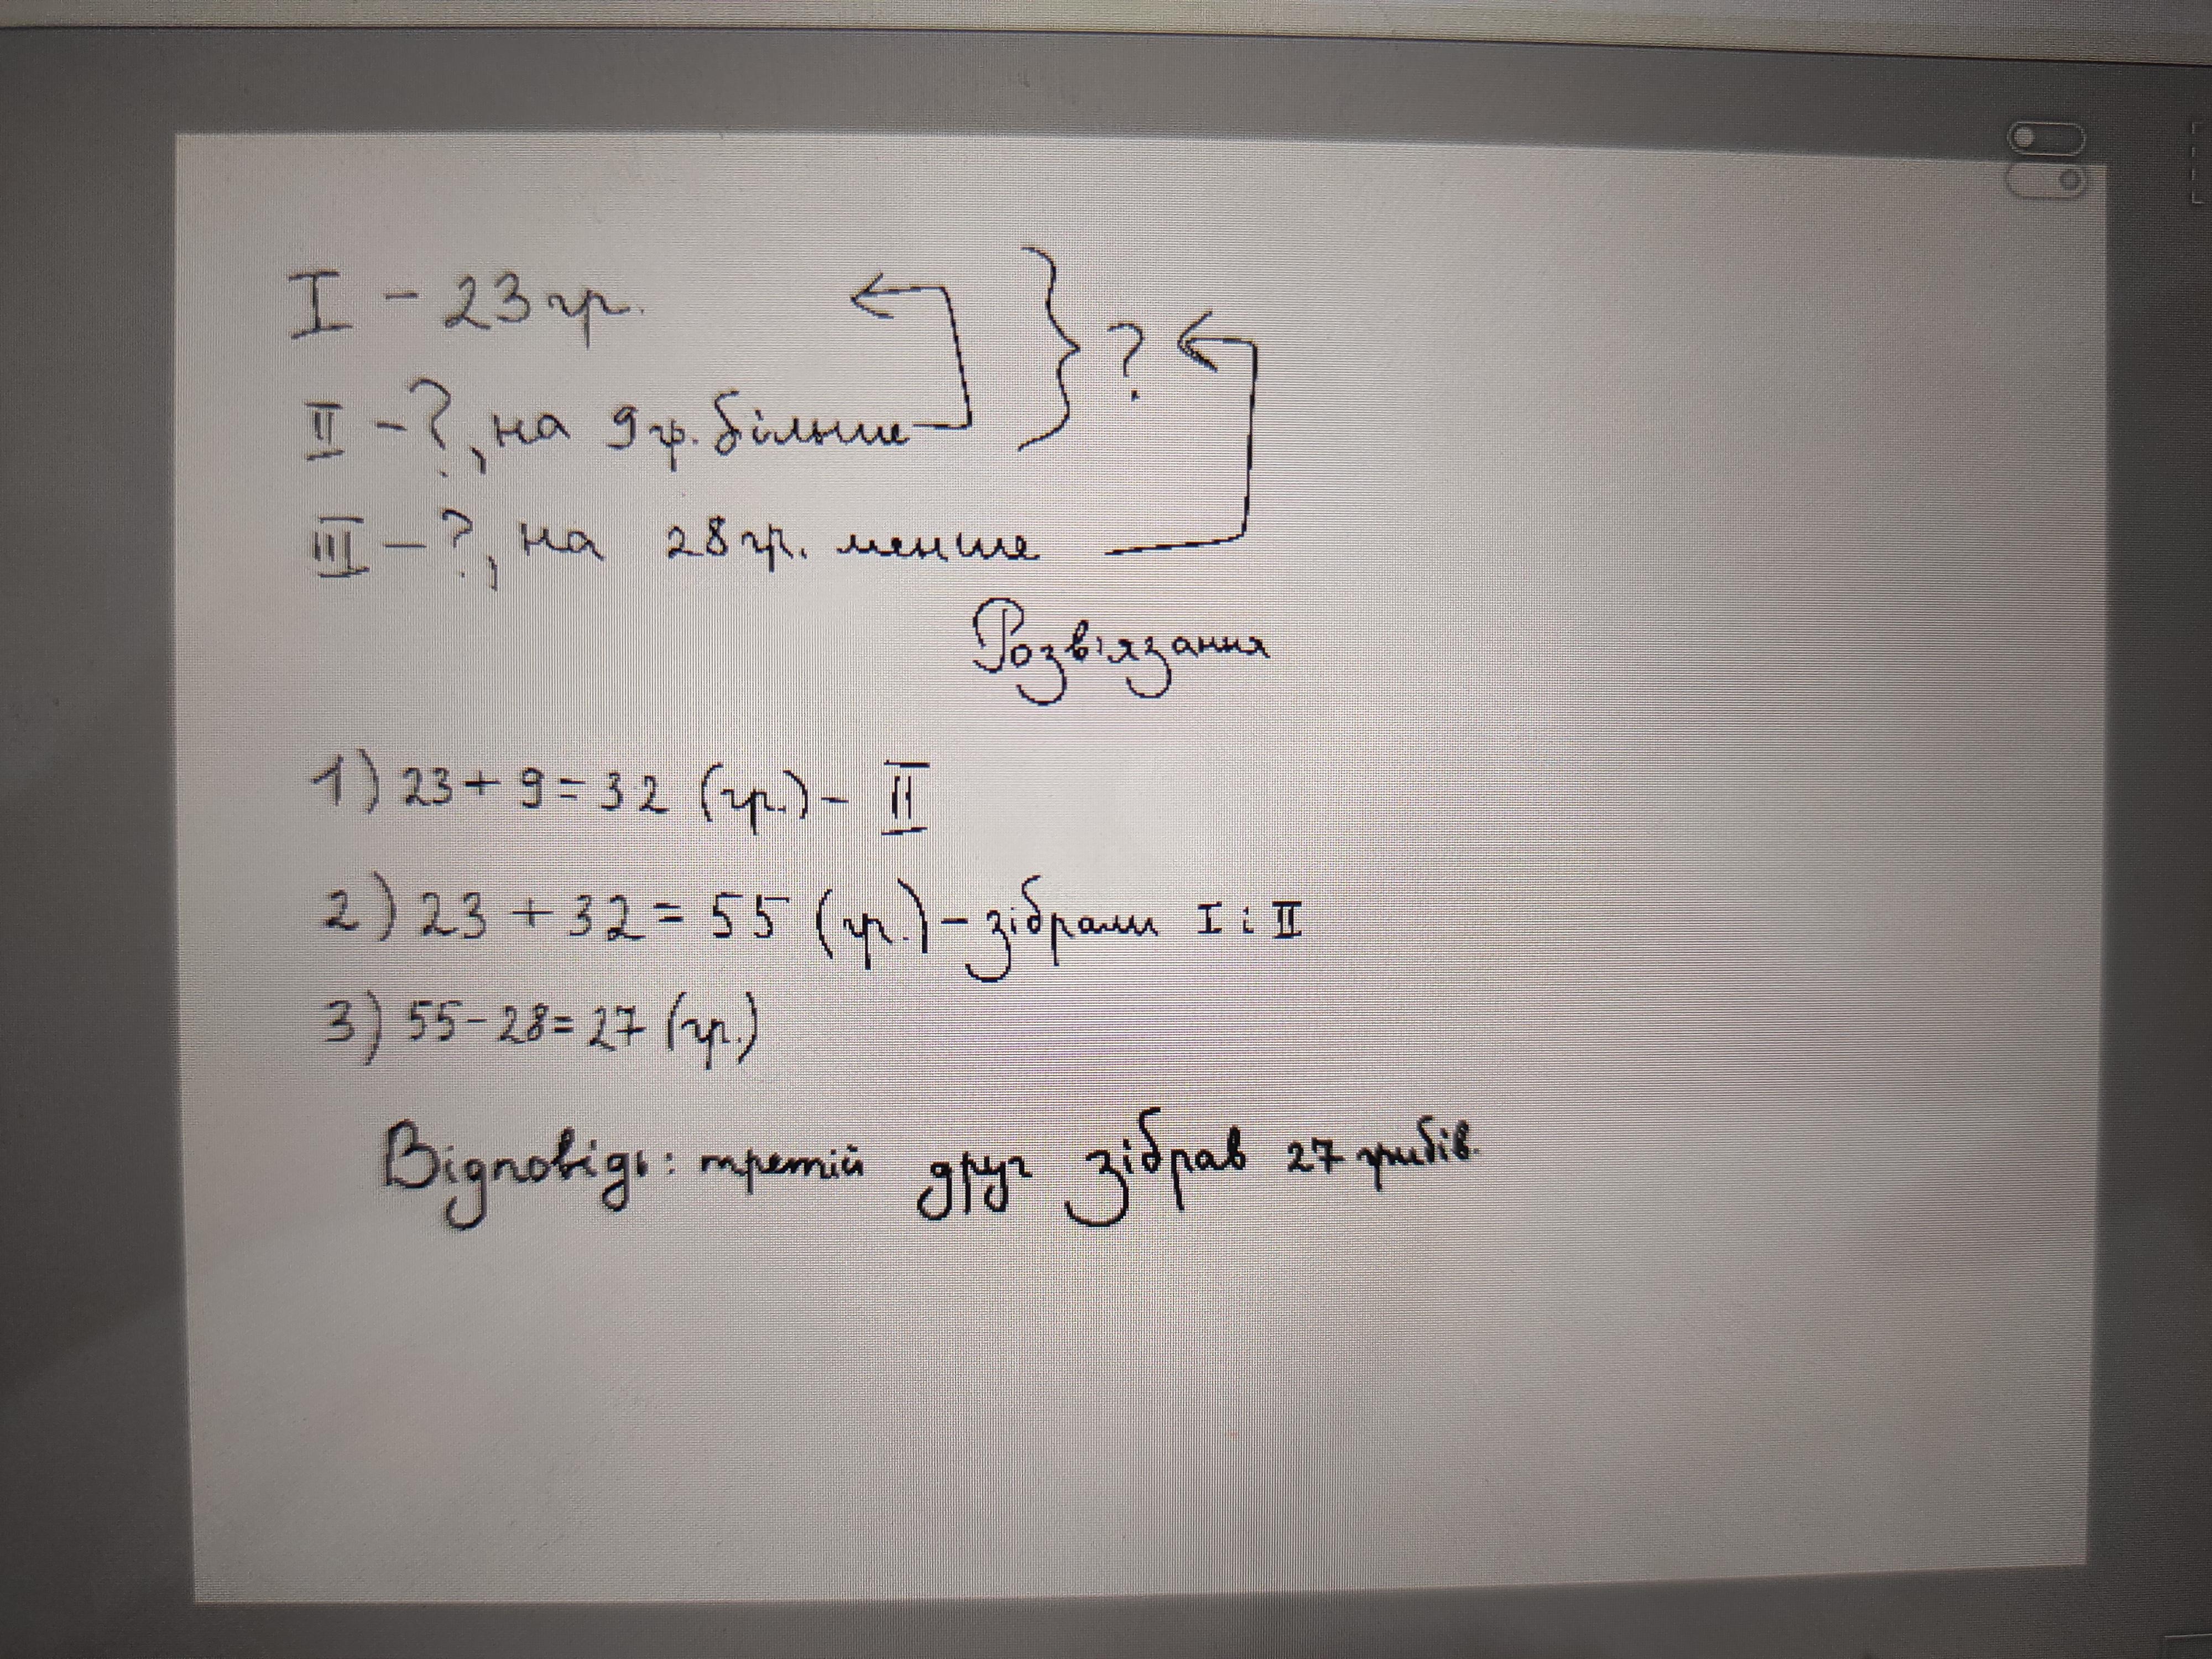 I – 23 гр.
} ?
II – ?, на 9 гр. більше
III – ?, на 28 гр. менше
Розв'язання
1) 23 + 9 = 32 (гр.) – II
2) 23 + 32 = 55 (гр.) – зібрали I і II
3) 55 – 28 = 27 (гр.)
Відповідь: третій друг зібрав 27 грибів.